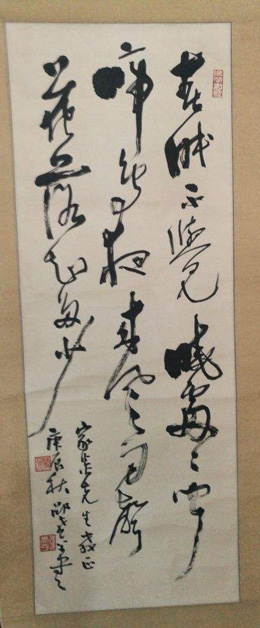 春眠不觉晓处处闻
啼鸟夜来风雨声
花落知多少
家宗先生教正
庚辰秋